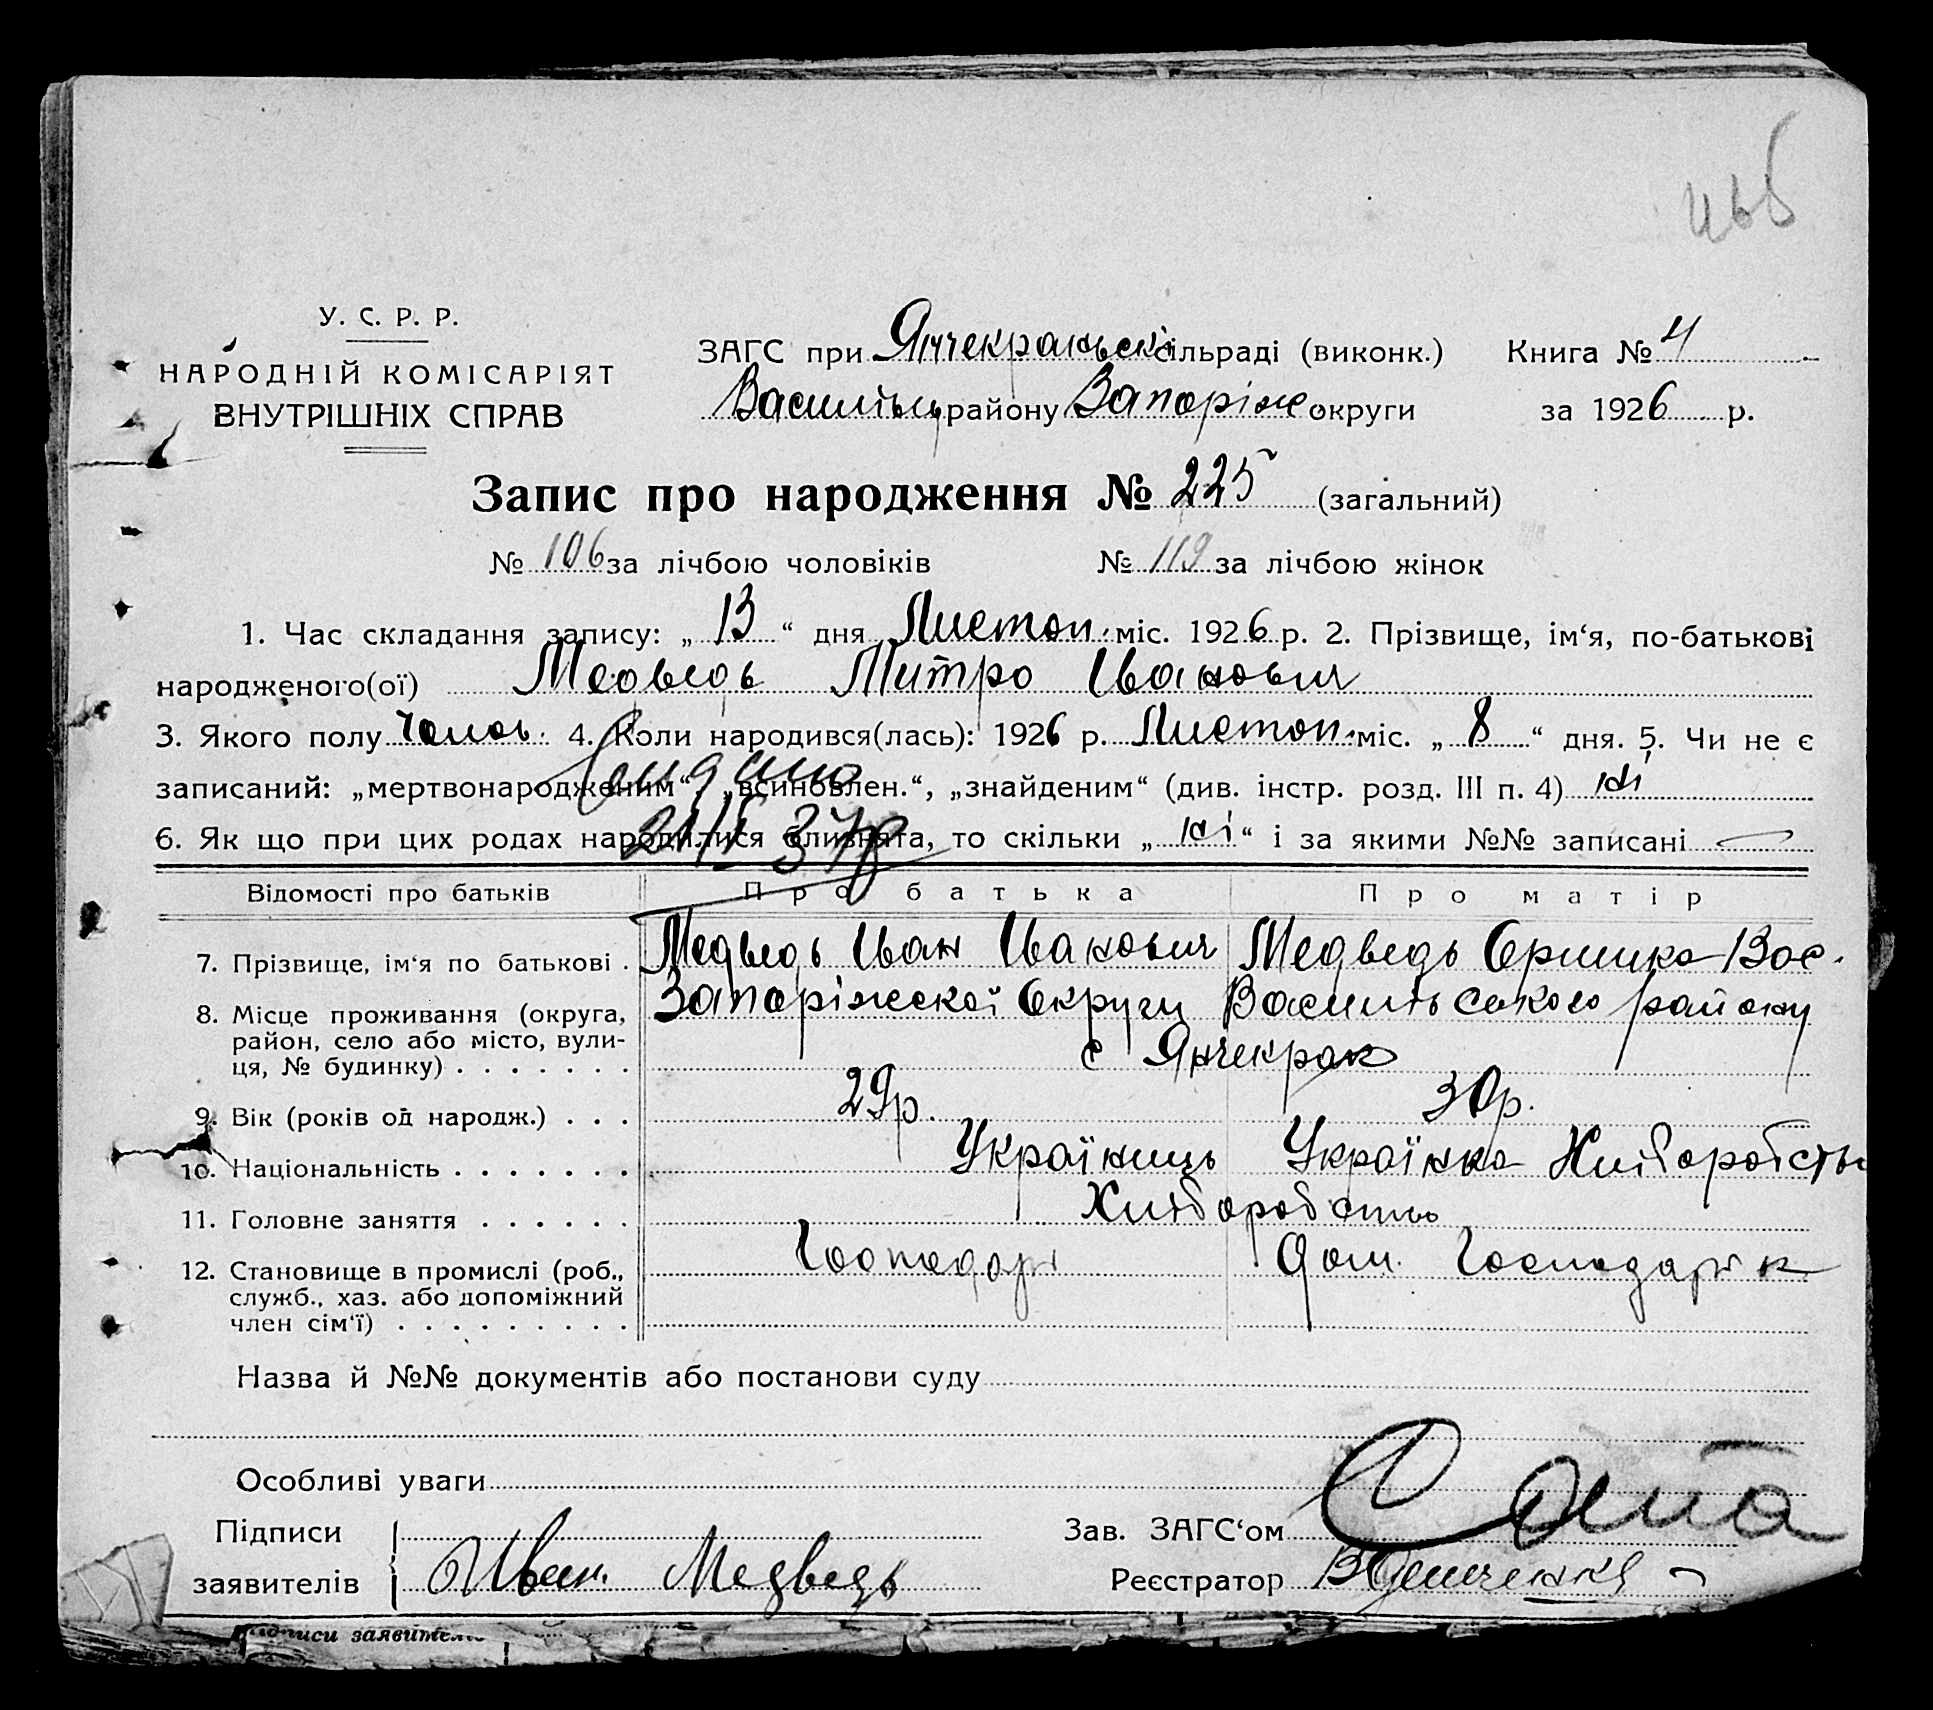 У. С. Р. Р.
НАРОДНІЙ КОМІСАРІЯТ
ВНУТРІШНІХ СПРАВ
ЗАГС при Янчекракьскі сільраді (виконк.) Книга № 4
Васильів району Запоріж округи за 1926 р.
Запис про народження № 225 (загальний)
№ 106 за лічбою чоловіків № 119 за лічбою жінок
1. Час складання запису: „ 13 “ дня Листоп. міс. 1926 р. 2. Прізвище, ім‘я, по-батькові
народженого(ої) Медведь Митро Іванович
3. Якого полу чолов. 4. Коли народився(лась): 1926 р. Листоп. міс. „ 8 “ дня. 5. Чи не є
записаний: „мертвонародженим“, „всиновлен.“, „знайденим“ (див. інстр. розд. III п. 4) ні
6. Як що при цих родах народилися близнята, то скільки „ ні “ і за якими №№ записані
Відомості про батьків Про батька Про матір
7. Прізвище, ім‘я по батькові . Медведь Іван Іванович Медведь Оришка Вас.
8. Місце проживання (округа, Запоріжської Округи Васильівського району
район, село або місто, вули-
ця, № будинку) . . . . . . . с Янчекрак
9. Вік (років од народж.) . . . 29р. 30р.
10. Національність . . . . . . . Українець Українка Хліборобств
11. Головне заняття . . . . . . Хліборобство
12. Становище в промислі (роб., Господарь Дом. Господарьк
служб., хаз. або допоміжний
член сім‘ї) . . . . . . . . .
Назва й №№ документів або постанови суду
Особливі уваги
Підписи
Зав. ЗАГС‘ом
заявителів Иван. Медведь
Реєстратор
Підписи заявителів